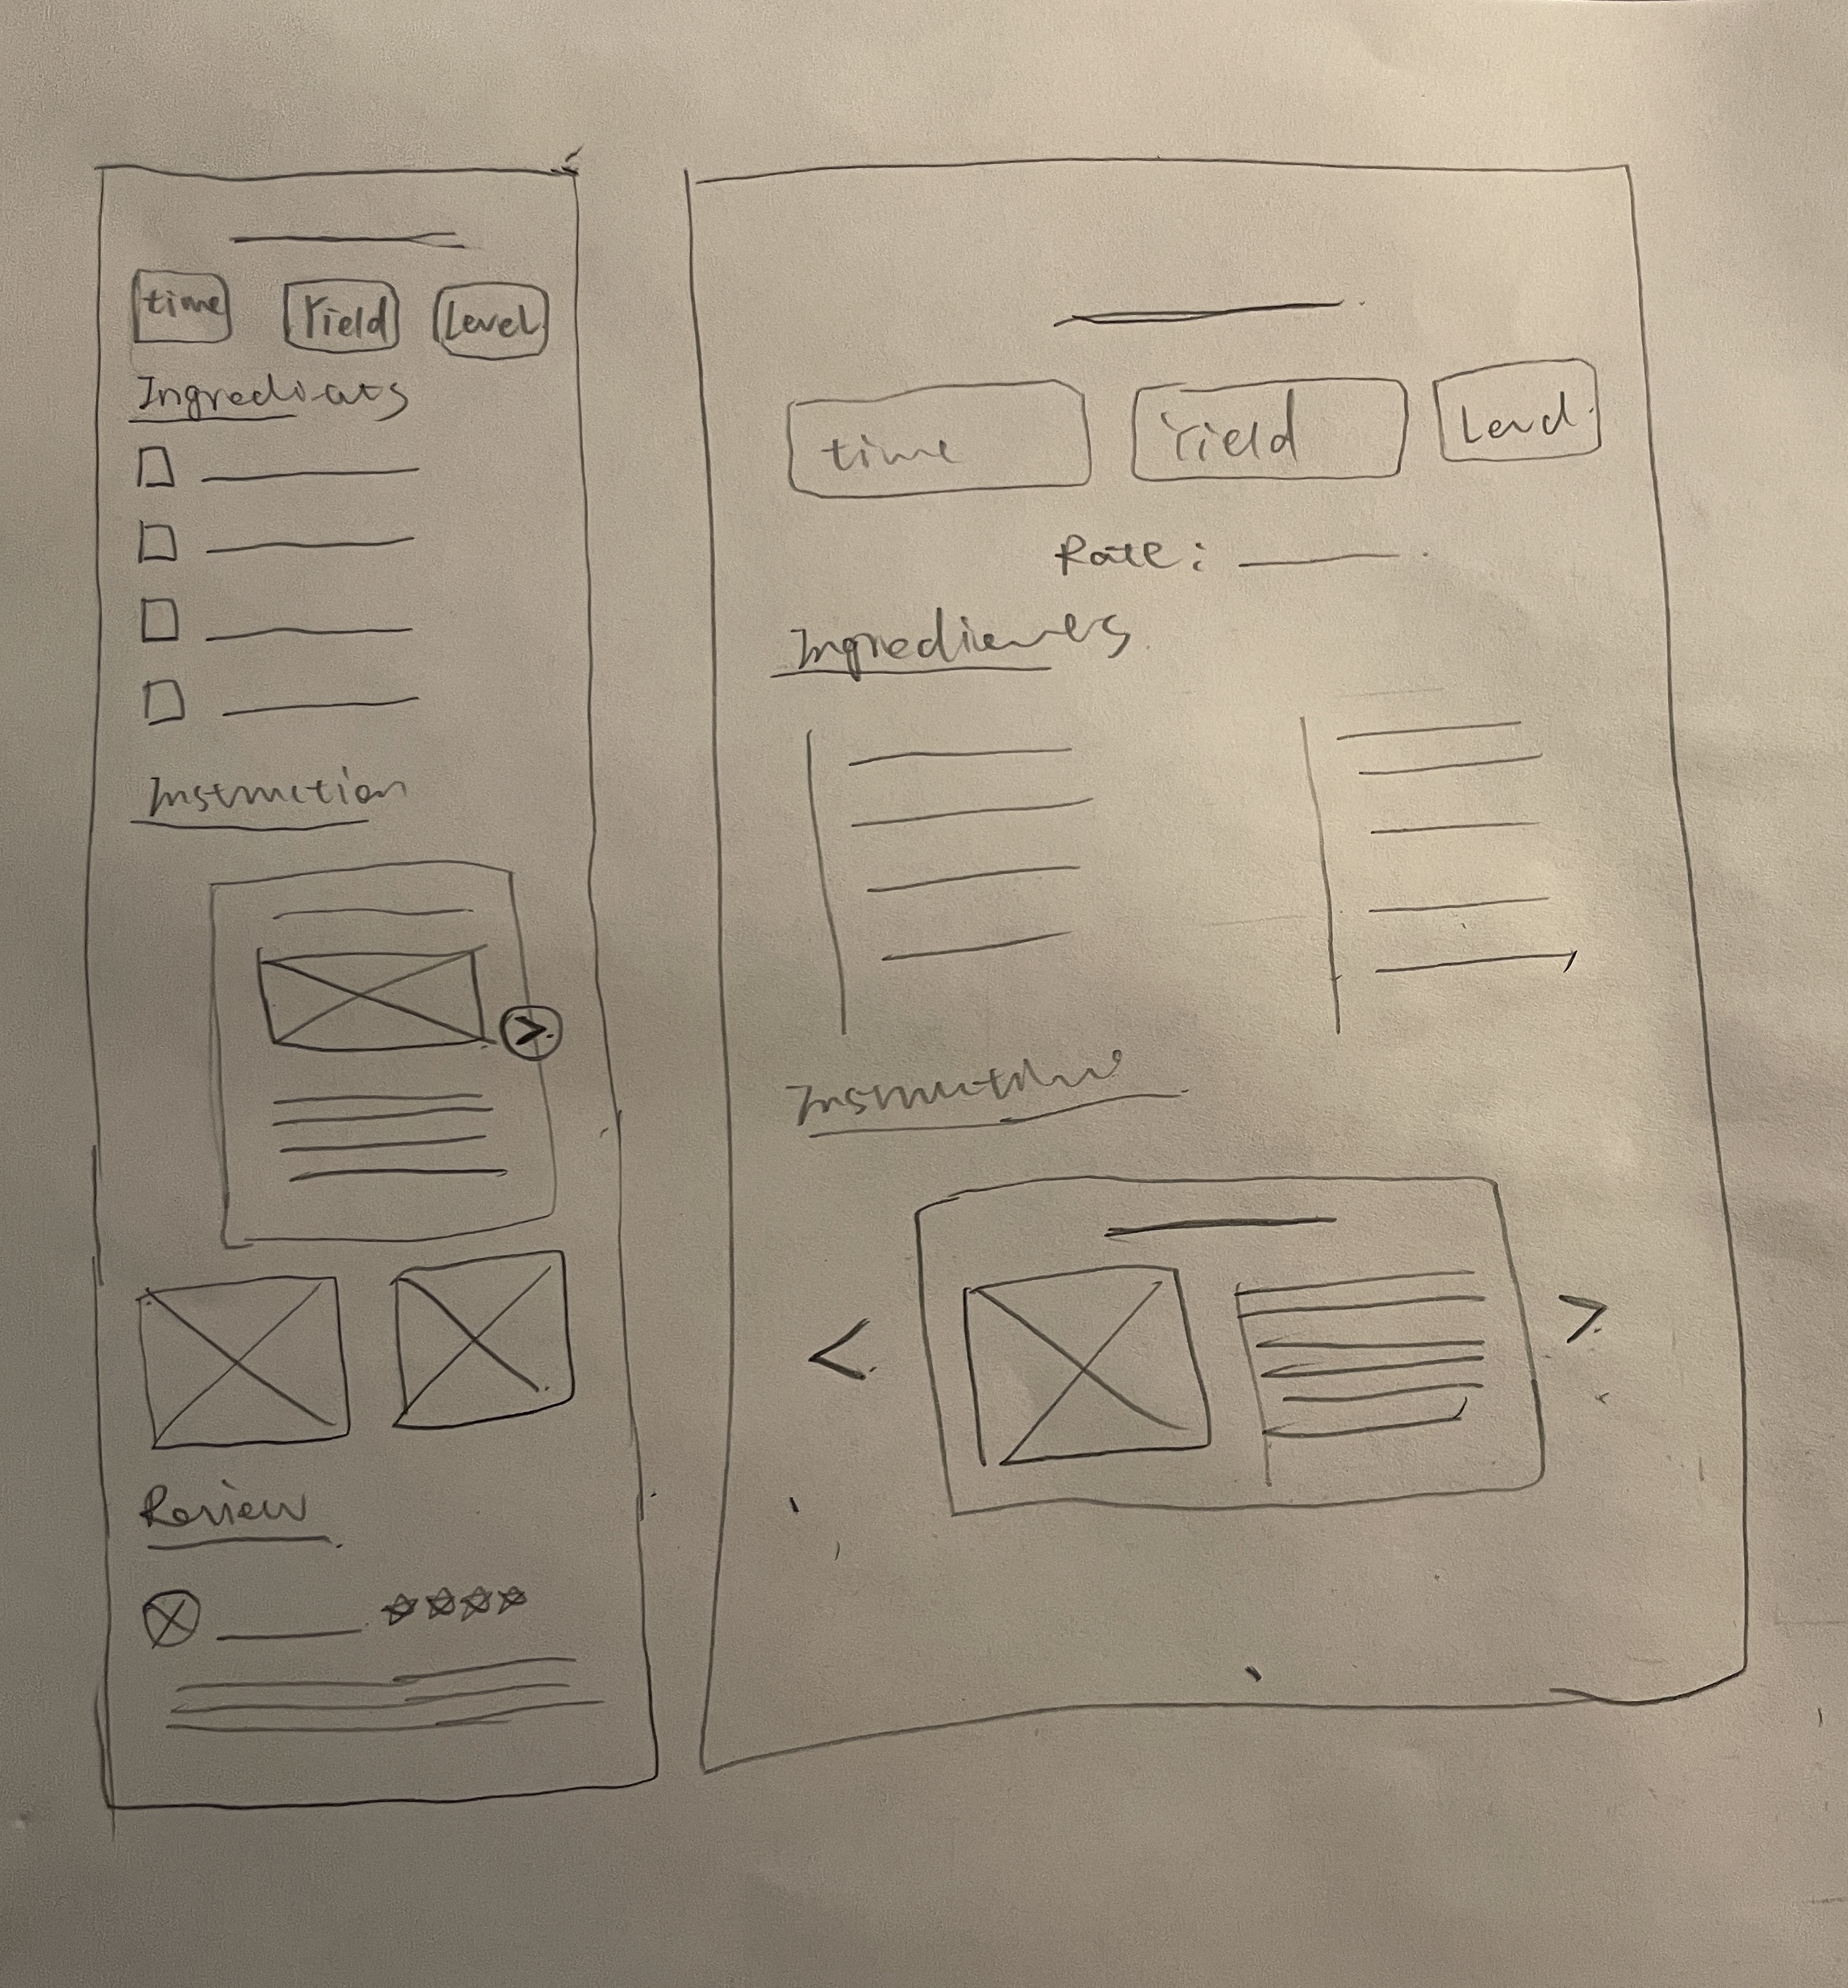 time Yield Level
Ingredients
Instruction
Review
time Yield Level
Rate:
Ingredients
Instruction